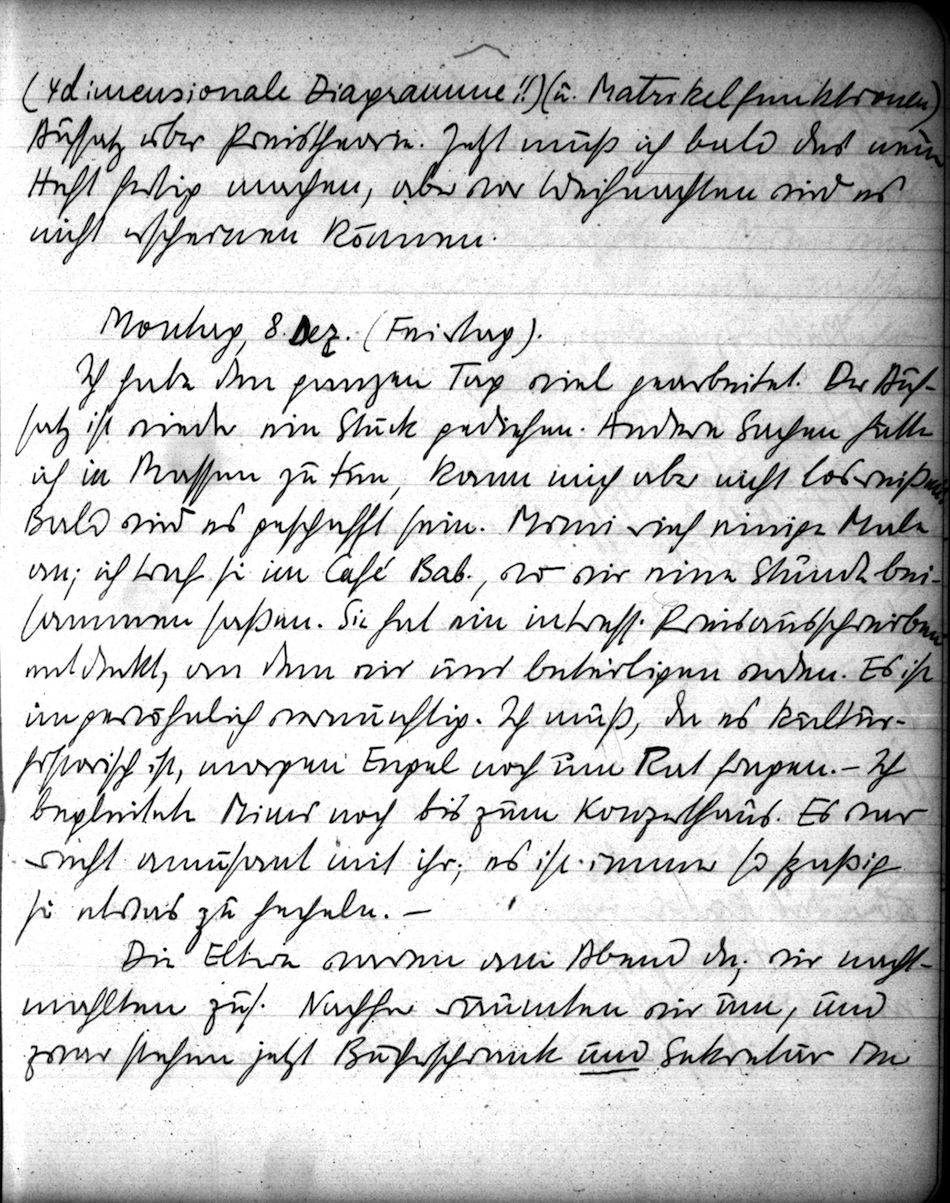 (4dimensionale Diagramme!!) (u. Matrikelfunktionen)
Aufsatz über Preistheorie. Jetzt muß ich bald das neue
Heft fertig machen, aber vor Weihnachten wird es
nicht erscheinen können.
Montag, 8. Dez. (Feiertag).
Ich habe den ganzen Tag viel gearbeitet. Der Auf-
satz ist wieder ein Stück gediehen. Andere Sachen hätte
ich in Massen zu tun, kann mich aber nicht losreißen
Bald wird es geschafft sein. Mimi rief einige Male
an; ich traf sie im Café Bab., wo wir eine Stunde bei-
sammen saßen. Sie hat ein intress. Preisausschreiben
entdeckt, an dem wir uns beteiligen werden. Es ist
ungewöhnlich vernünftig. Ich muß, da es kultur-
historisch ist, morgen Engel noch um Rat fragen. – Ich
begleitete Mimi noch bis zum Konzerthaus. Es war
recht amüsant mit ihr; es ist immer so spaßig
sie etwas zu hecheln. –
Die Eltern waren am Abend da; wir nacht-
mahlten zus. Nachher räumten wir um, und
zwar stehen jetzt Bücherschrank und Sekretär im